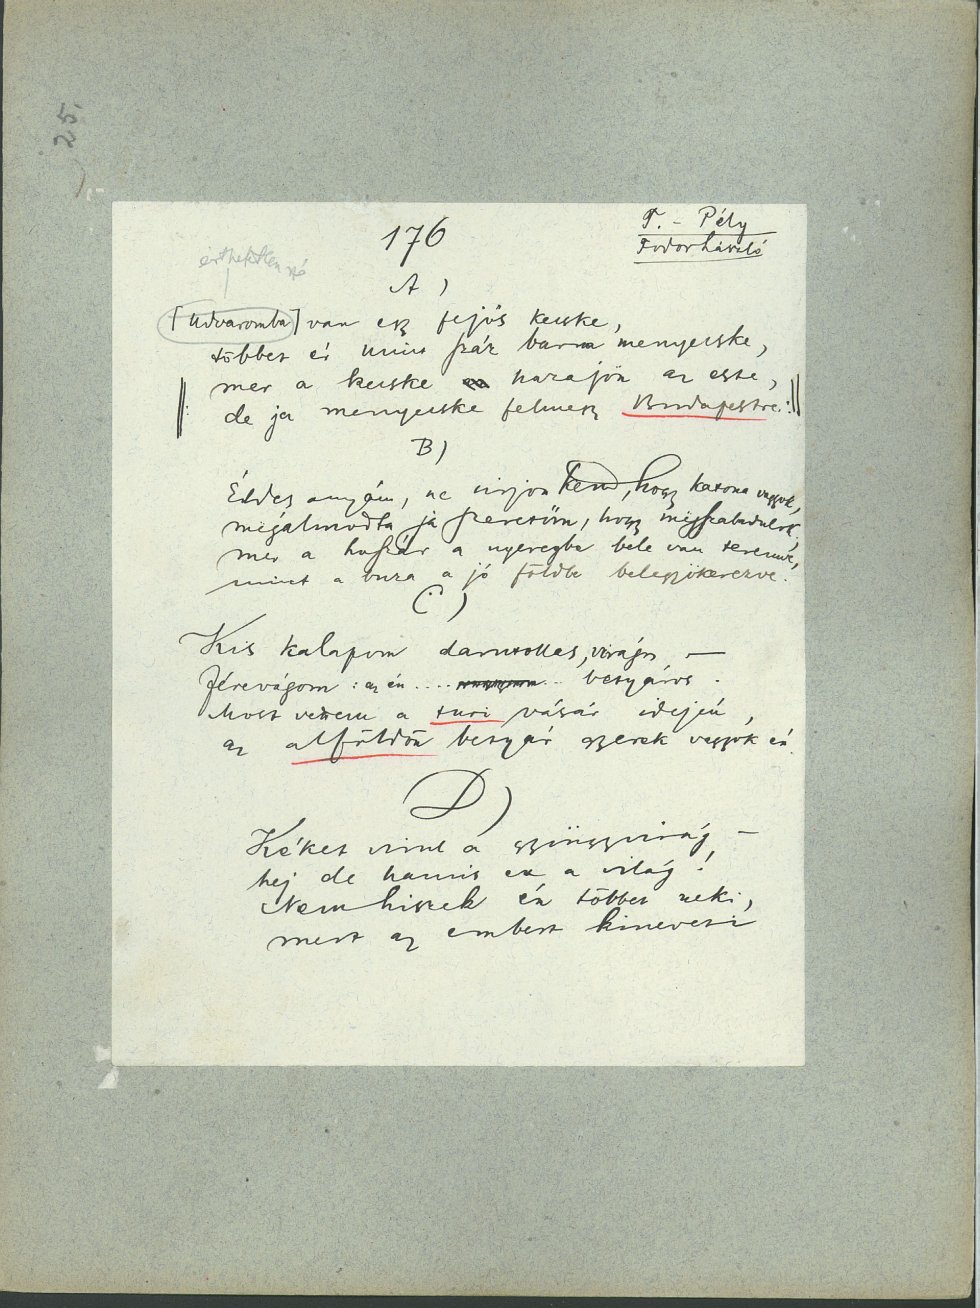 25.
T. - Pély
Fodor László
176
érthetetlen szó
A)
[Udvaromba] van egy fejős kecske,
többet ér mint száz barna menyecske,
mer a kecske hazajön az este,
de ja menyecske felmegy Budapestre.:
B)
Édes anyám, ne sirjon kend, hogy katona vagyok,
megálmodta ja szeretőm, hogy megszabadulok,
mer a huszár a nyeregbe bele van teremve,
mint a buza a jó földbe belegyökerezve.
C)
Kis kalapom darutollas, virágos —
félrevágom : az én .... .. betyáros .
Most vettem a turi vásár idején,
az alföldön betyár gyerek vagyok én.
D)
Kéket virul a gyöngyvirág —
hej de hamis ez a világ!
Nem hiszek én többet neki,
mert az embert kineveti